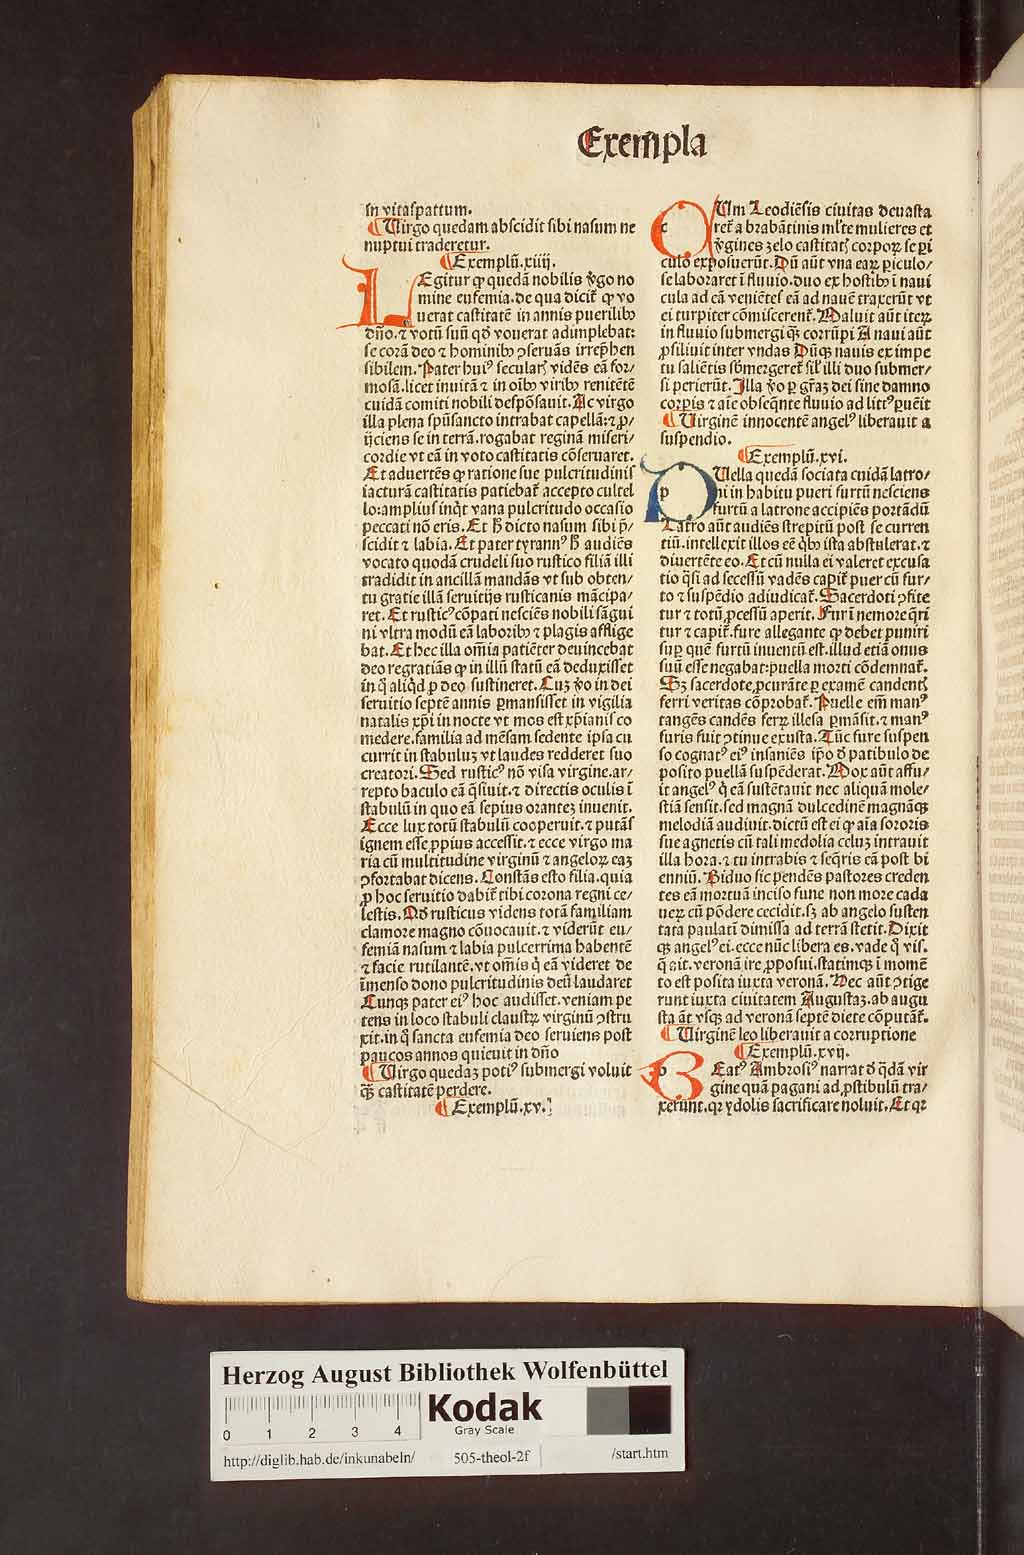 Exempla
in vitaspattum.
¶ Virgo quedam abscidit sibi nasum ne
nuptui traderetur.
¶ Exemplū.xiiij.
LEgitur ꝙ quedā nobilis v̄go no
mine eufemia.de qua dicit̄ ꝙ vo
uerat castitatē in annis puerilibꝰ
dn̄o.⁊ votū suū qd̄ vouerat adimplebat:
se corā deo ⁊ hominibꝰ ꝯseruās irrep̄hen
sibilem.Pater huiꝰ secularꝭ vidēs eā for⸗
mosā.licet inuitā ⁊ in oībꝰ viribꝰ renitētē
cuidā comiti nobili despōsauit.Ac virgo
illa plena spūsancto intrabat capellā:⁊ ꝓ⸗
ijciens se in terrā.rogabat reginā miseri⸗
cordie vt eā in voto castitatis cōseruaret.
Et aduertēs ꝙ ratione sue pulcritudinis
iacturā castitatis patiebat̄ accepto cultel
lo:amplius inq̄t vana pulcritudo occasio
peccati nō eris.Et h̄ dicto nasum sibi p̄⸗
scidit ⁊ labia.Et pater tyrannꝰ h̄ audiēs
vocato quodā crudeli suo rustico filiā illi
tradidit in ancillā mandās vt sub obten⸗
tu gratie illā seruitijs rusticanis mācipa⸗
ret.Et rusticꝰ cōpati nesciēs nobili sāgui
ni vltra modū eā laboribꝰ ⁊ plagis afflige
bat.Et hec illa om̄ia patiēter deuincebat
deo regratiās ꝙ in illū statū eā deduxisset
in q̄ aliq̄d ꝓ deo sustineret.Cuꝫ v̄o in dei
seruitio septē annis ꝑmansisset in vigilia
natalis xp̄i in nocte vt mos est xp̄ianis co
medere.familia ad mēsam sedente ipsa cu
currit in stabuluꝫ vt laudes redderet suo
creatori.Sed rusticꝰ nō visa virgine.ar⸗
repto baculo eā q̄siuit.⁊ directis oculis ī
stabulū in quo eā sepius oranteꝫ inuenit.
Ecce lux totū stabulū cooperuit.⁊ putās
ignem esse ꝓpius accessit.⁊ ecce virgo ma
ria cū multitudine virginū ⁊ angeloꝝ eaꝫ
ꝯfortabat dicens.Constās esto filia.quia
ꝓ hoc seruitio dabit̄ tibi corona regni ce⸗
lestis.Qd̄ rusticus videns totā familiam
clamore magno cōuocauit.⁊ viderūt eu⸗
femiā nasum ⁊ labia pulcerrima habentē
⁊ facie rutilantē.vt om̄is q̄ eā videret de
īmenso dono pulcritudinis deū laudaret
Cunqꝫ pater eiꝰ hoc audisset.veniam pe
tens in loco stabuli claustꝝ virginū ꝯstru
xit.in q̄ sancta eufemia deo seruiens post
paucos annos quieuit in dn̄o
¶ Virgo quedaꝫ potiꝰ submergi voluit
qꝫ̄ castitatē perdere.
¶ Exemplū.xv.
CUm Leodiēsis ciuitas deuasta
ret̄ a brabātinis ml̄te mulieres et
v̄gines zelo castitatꝭ corpoꝝ se ꝑi
culo exposuerūt.Dū aūt vna eaꝝ ꝑiculo⸗
se laboraret ī fluuio.duo ex hostibꝰ ī naui
cula ad eā veniētes eā ad nauē traxerūt vt
ei turpiter cōmiscerent̄.Maluit aūt iteꝝ
in fluuio submergi qꝫ̄ corrūpi A naui aūt
ꝓsiliuit inter vndas Dūqꝫ nauis ex impe
tu saliētis sb̄mergeret̄ sil̄ illi duo submer⸗
si perierūt.Illa v̄o ꝑ gr̄aꝫ dei sine damno
corꝑis ⁊ aīe obseq̄nte fluuio ad littꝰ ꝑuēit
¶ Virginē innocentē angelꝰ liberauit a
suspendio.
¶ Exemplū.xvi.
PUella quedā sociata cuidā latro⸗
ni in habitu pueri furtū nesciens
furtū a latrone accipiēs portādū
Latro aūt audiēs strepitū post se curren
tiū.intellexit illos eē q̄bꝰ ista abstulerat.⁊
diuertēte eo.Et cū nulla ei valeret excusa
tio q̄si ad secessū vadēs capit̄ puer cū fur⸗
to ⁊ suspēdio adiudicat̄.Sacerdoti ꝯfite
tur ⁊ totū ꝓcessū aperit.Fur ī nemore q̄ri
tur ⁊ capit̄.fure allegante ꝙ debet puniri
suꝑ quē furtū inuentū est.illud etiā onus
suū esse negabat:puella morti cōdemnat̄.
Sꝫ sacerdote ꝓcurāte ꝑ examē candentꝭ
ferri veritas cōprobat̄.Puelle em̄ manꝰ
tangēs candēs ferꝝ illesa ꝑmāsit.⁊ manꝰ
furis fuit ꝯtinue exusta.Tūc fure suspen
so cognatꝰ eiꝰ insaniēs ip̄o d̄ patibulo de
posito puellā suspēderat.Mox aūt affu⸗
it angelꝰ q̄ eā sustētauit nec aliquā mole⸗
stiā sensit.sed magnā dulcedinē magnāqꝫ
melodiā audiuit.dictū est ei ꝙ aīa sororis
sue agnetis cū tali medolia celuꝫ intrauit
illa hora.⁊ tu intrabis ⁊ seq̄ris eā post bi
enniū.Biduo sic pendēs pastores creden
tes eā mortuā inciso fune non more cada
ueꝝ cū pōdere cecidit.sꝫ ab angelo susten
tata paulati dimissa ad terrā stetit.Dixit
qꝫ angelꝰ ei.ecce nūc libera es.vade q̄ vis.
q̄ ait.veronā ire ꝓposui.statimqꝫ ī momē
to est posita iuxta veronā.Hec aūt ꝯtige
runt iuxta ciuitatem Augustaꝫ.ab augu
sta āt vsqꝫ ad veronā septē diete cōputāt̄.
¶ Virginē leo liberauit a corruptione
¶ Exemplū.xvij.
BEatꝰ Ambrosiꝰ narrat d̄ q̄dā vir
gine quā pagani ad ꝓstibulū tra⸗
xerunt.qꝛ ydolis sacrificare noluit.Et qꝛ
Herzog August Bibliothek Wolfenbüttel
0 1 2 3 4
Kodak
Gray Scale
http://diglib.hab.de/inkunabeln/ 505-theol-2f /start.htm